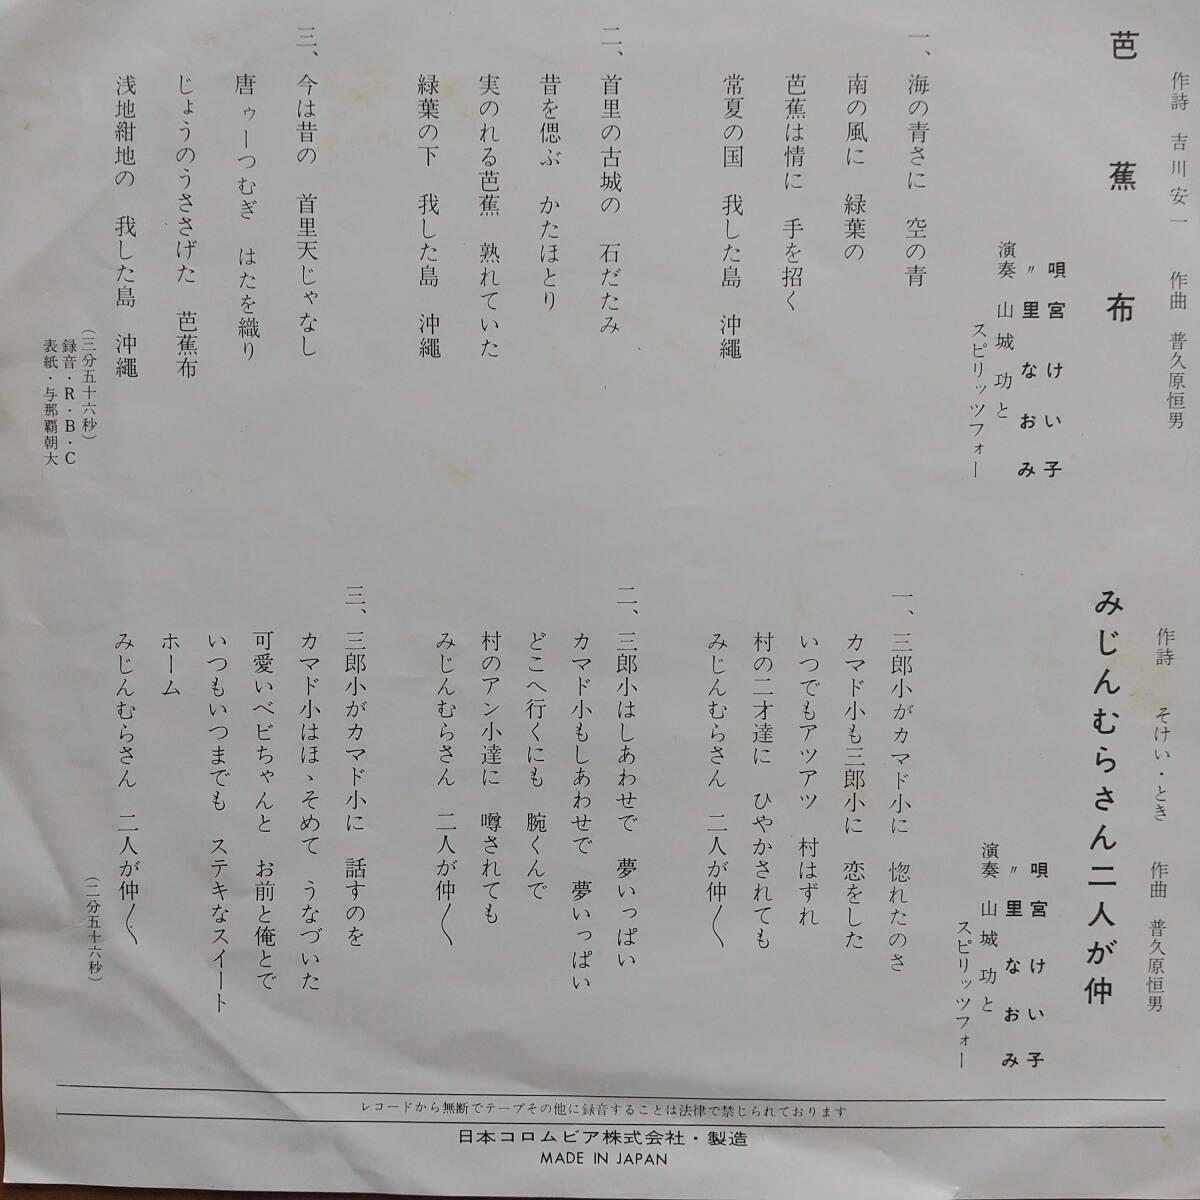 芭蕉布
作詩 吉川安一 作曲 普久原恒男
唄 宮 けい子
〃 里 なおみ
演奏 山城 功と
スピリッツフォー
一、海の青さに 空の青
南の風に 緑葉の
芭蕉は情に 手を招く
常夏の国 我した島 沖縄
二、首里の古城の 石だたみ
昔を偲ぶ かたほとり
実のれる芭蕉 熟れていた
緑葉の下 我した島 沖縄
三、今は昔の 首里天じゃなし
唐ゥーつむぎ はたを織り
じょうのうささげた 芭蕉布
浅地紺地の 我した島 沖縄
(三分五十六秒)
録音・R・B・C
表紙・与那覇朝大
みじんむらさん二人が仲
作詩 そけい・とき 作曲 普久原恒男
唄 宮 けい子
〃 里 なおみ
演奏 山城 功と
スピリッツフォー
一、三郎小がカマド小に 惚れたのさ
カマド小も三郎小に 恋をした
いつでもアツアツ 村はずれ
村の二才達に ひやかされても
みじんむらさん 二人が仲〱
二、三郎小はしあわせで 夢いっぱい
カマド小もしあわせで 夢いっぱい
どこへ行くにも 腕くんで
村のアン小達に 噂されても
みじんむらさん 二人が仲〱
三、三郎小がカマド小に 話すのを
カマド小はほゝそめて うなづいた
可愛いベビちゃんと お前と俺とで
いつもいつまでも ステキなスイート
ホーム
みじんむらさん 二人が仲〱
(二分五十六秒)
レコードから無断でテープその他に録音することは法律で禁じられております
日本コロムビア株式会社・製造
MADE IN JAPAN